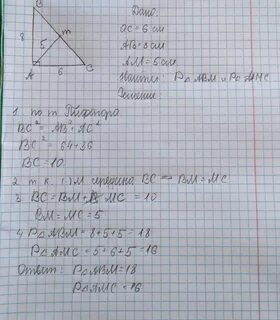 B
8
5
m
A
6
C
Дано:
AC = 6 см
AB = 8 см
AM = 5 см
Найти: P△ABM и P△AMC
Решение:
1. по т. Пифагора
BC² = AB² + AC²
BC² = 64 + 36
BC = 10
2. т.к. M середина BC ⇒ BM = MC
3 BC = BM + MC = 10
BM = MC = 5
4 P△ABM = 8 + 5 + 5 = 18
P△AMC = 5 + 6 + 5 = 16
Ответ: P△ABM = 18
P△AMC = 16